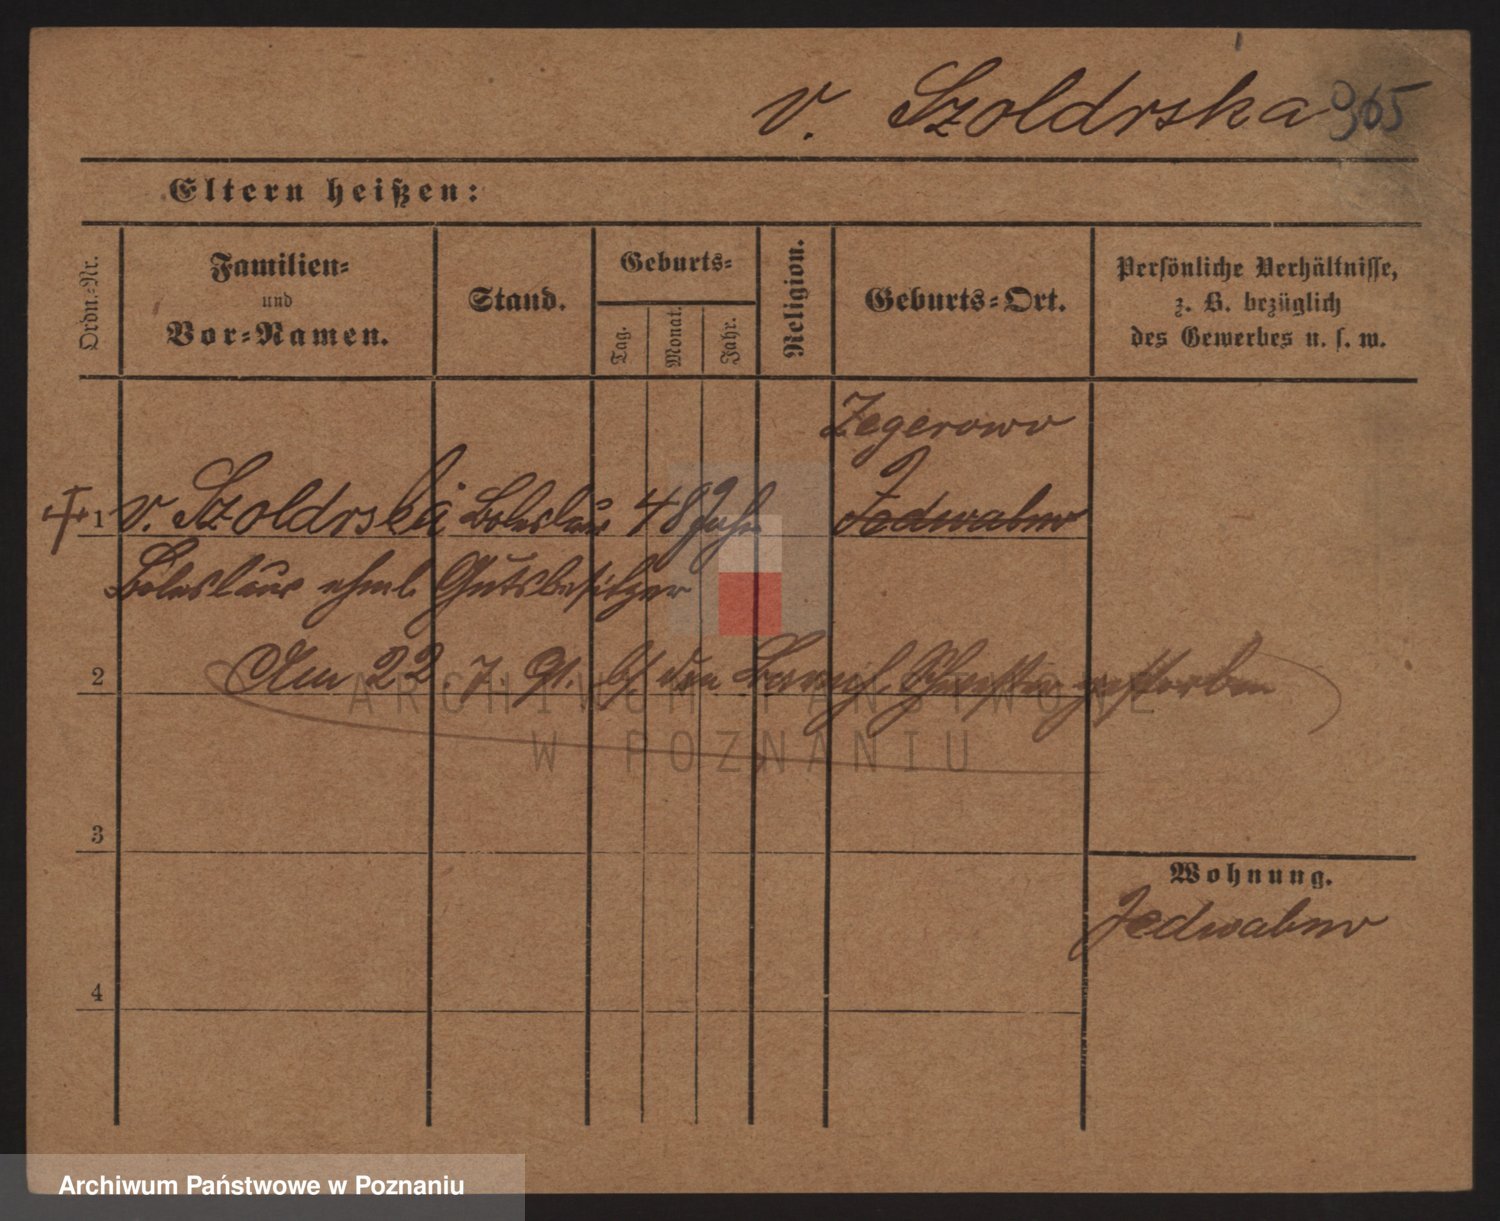 v. Szoldrska 965
Eltern heißen:
Ordn.-Nr.
Familien-
und
Vor-Namen.
Stand.
Geburts-
Tag.
Monat.
Jahr.
Religion.
Geburts-Ort.
Persönliche Verhältnisse,
z. B. bezüglich
des Gewerbes u. s. w.
Zegerowo
1 v. Szoldrska Boleslaus 48 Jahr Jedwabno
Boleslaus ehml. Gutsbesitzer
2 Am 22. 7. 91. b. den Barmh. gestorben
3
Wohnung.
Jedwabno
4
ARCHIWUM PAŃSTWOWE
W POZNANIU
Archiwum Państwowe w Poznaniu